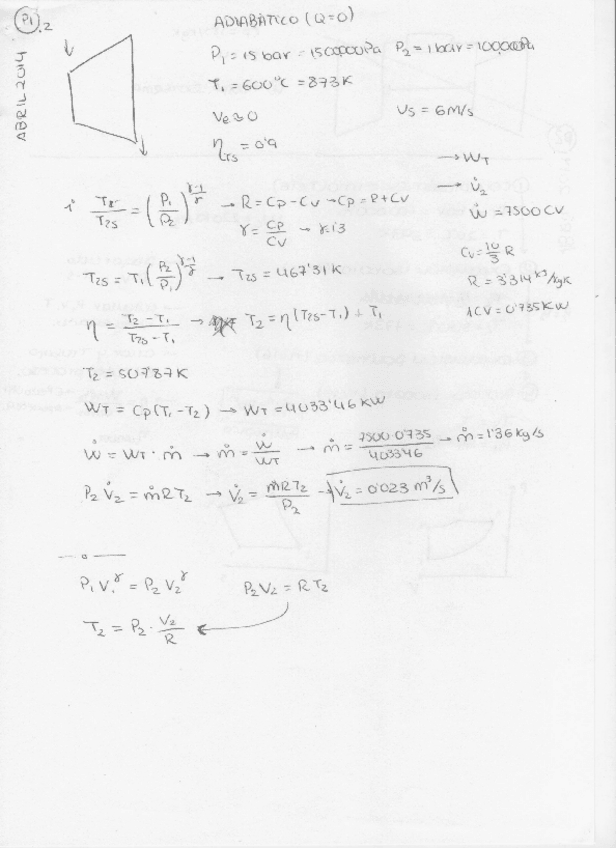 P1.2
ABRIL 2014
ADIABÁTICO (Q=0)
P1 = 15 bar = 1500000Pa P2 = 1 bar = 100000Pa
T1 = 600°C = 873K
Ve≈0 Vs = 6M/s
ηTS = 0'9
→ WT
→ V̇2
Ẇ = 7500CV
Cv = 10/3 R
R = 3'314 KJ/KgK
1CV = 0'735KW
(P1/P2)^(γ-1/γ) → R = Cp - Cv → Cp = R + Cv
γ = Cp/Cv → γ=1'3
T2S = T1 (P2/P1)^(γ-1/γ) → T2S = 467'31K
η = T2 - T1 / T2S - T1 → T2 = η(T2S - T1) + T1
T2 = 507'87K
WT = Cp(T1 - T2) → WT = 4033'46 KW
Ẇ = WT · ṁ → ṁ = Ẇ/WT → ṁ = 7500 0'735 / 4033'46 → ṁ = 1'36 Kg/s
P2 V̇2 = ṁRT2 → V̇2 = ṁRT2/P2 → V̇2 = 0'023 m³/s
P1 V1^γ = P2 V2^γ P2V2 = RT2
T2 = P2 · V2/R